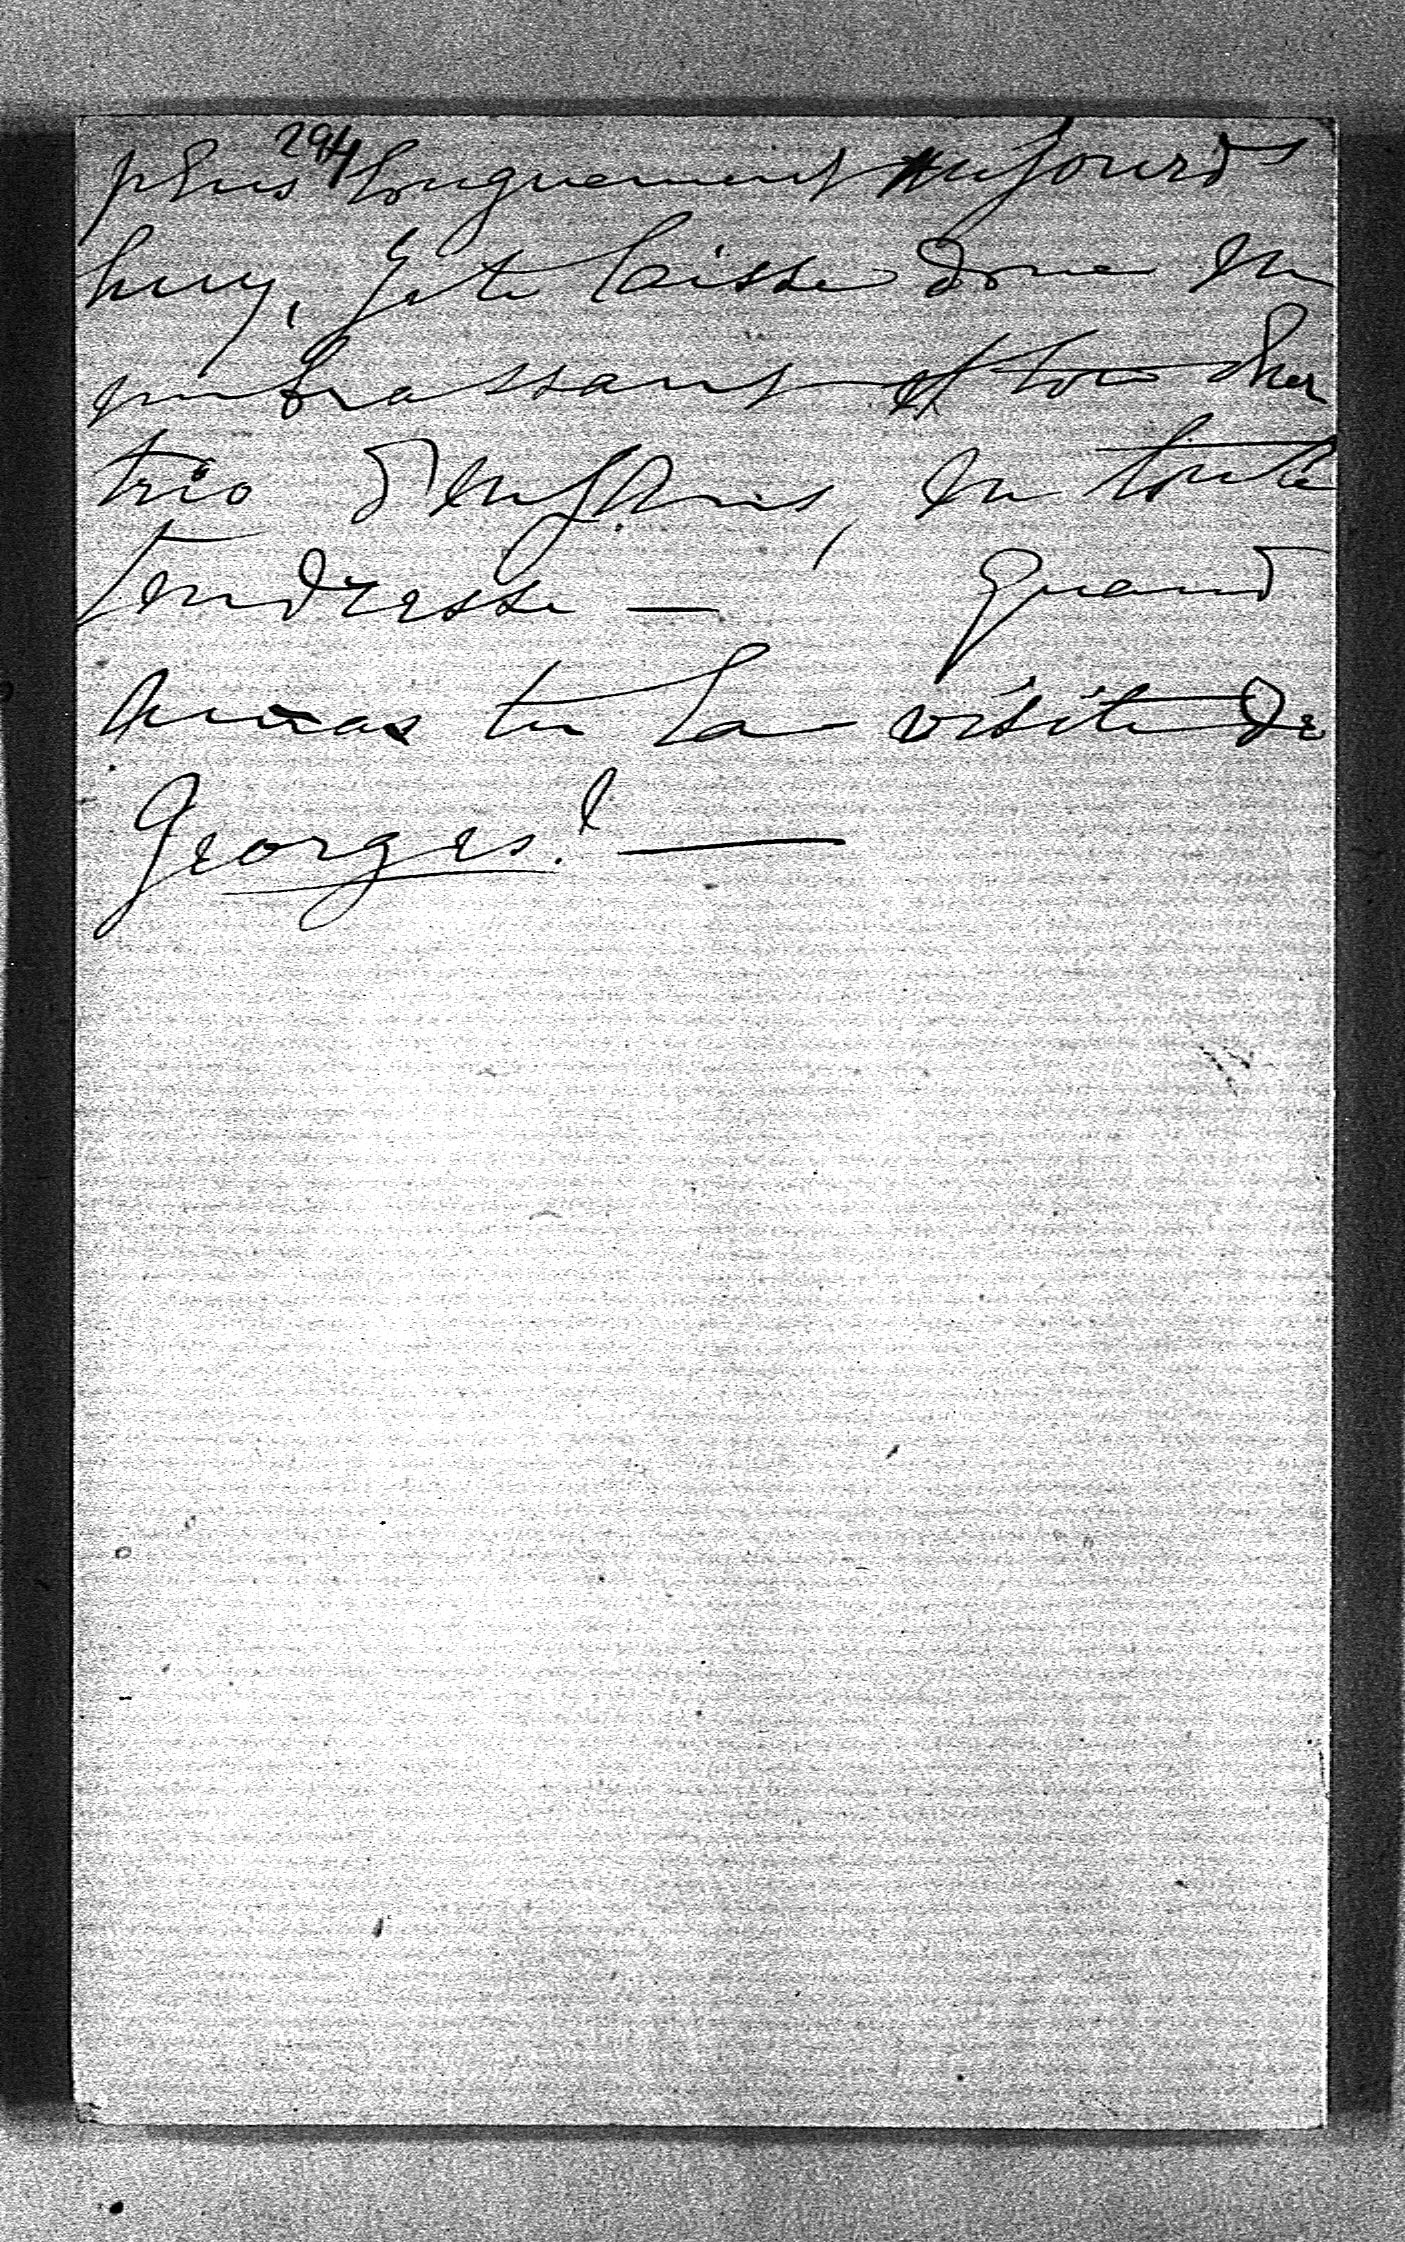 294
plus longuement aujourd
huy, je te laisse donc en
embrassant et ton cher
trio d'enfans, en toute
tendresse — Quand
auras tu la visite de
Georges? —